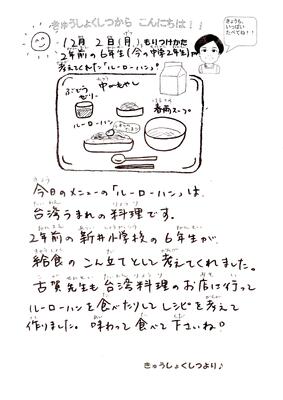 きゅうしょくしつから こんにちは!!
きょうも、
いっぱい
たべてね!!
12月 2日(月) もりつけかた
2年前の6年生(今の中学2年生)が
考えてくれた「ルーローハン」
ぶどう
ゼリー
中華もやし
春雨スープ
ルーローハン
今日のメニューの「ルーローハン」は、
台湾うまれの料理です。
2年前の新井小学校の6年生が、
給食のこん立てとして考えてくれました。
古賀先生も台湾料理のお店に行って
ルーローハンを食べたりしてレシピを考えて
作りました。味わって食べて下さいね!
きゅうしょくしつより♪